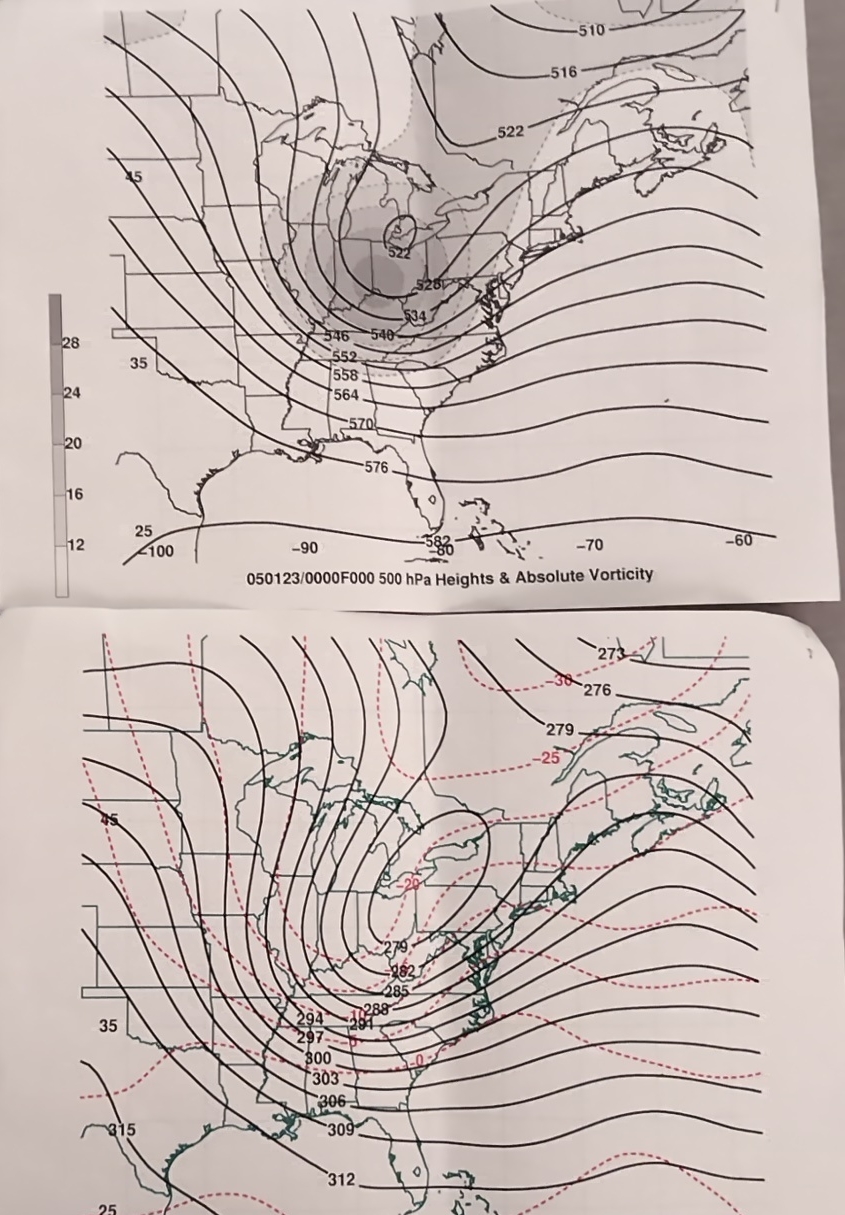 510
516
522
45
522
528
534
546
540
28
552
35
558
24
564
570
20
576
16
25
582
12
-100
-90
-80
-70
-60
050123/0000F000 500 hPa Heights & Absolute Vorticity
273
-30
276
279
-25
45
-20
279
282
285
288
-10
294
291
35
297
-5
300
-0
303
306
315
309
312
25